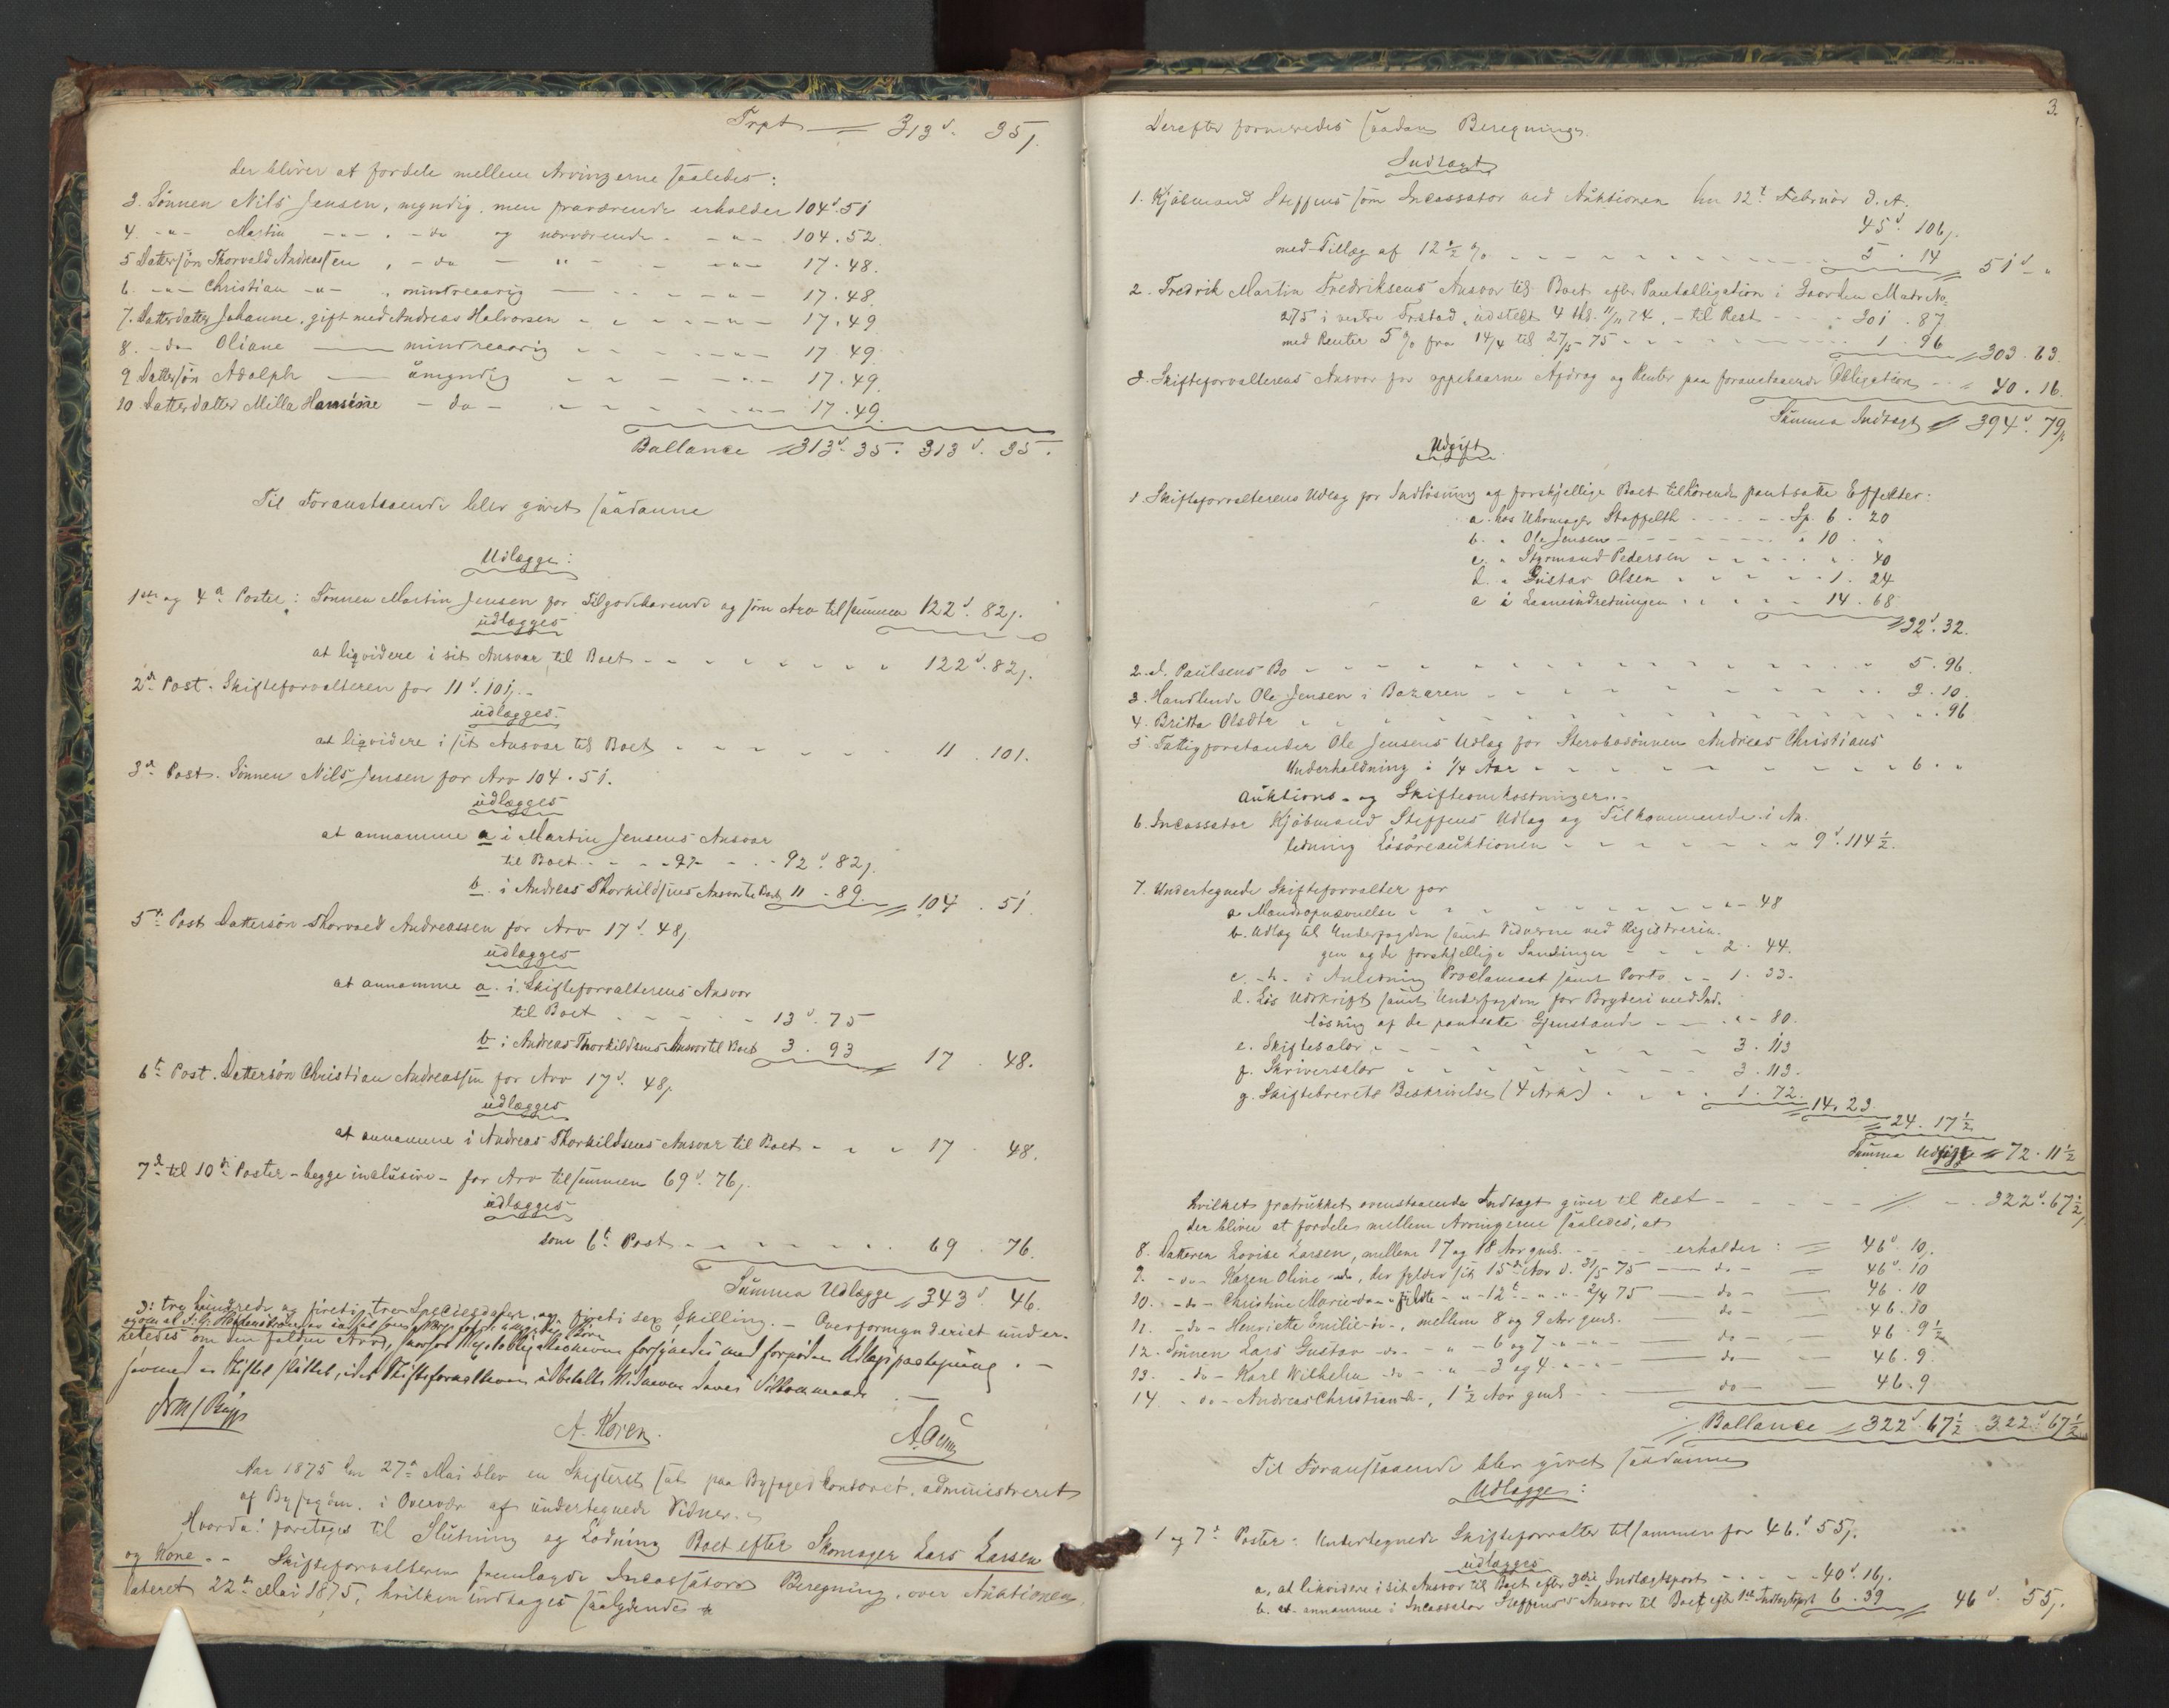 Trpt = 313 d. 35 β.
der bliver at fordele mellem Arvingerne saaledes:
3. Sønnen Nils Jensen, myndig, men fraværende erholder 104 d. 51
4. -"- Martin -"- , -do- og nærværende -"- 104. 52
5 Dattersøn Thorvald Andreassen, -do- -"- 17. 48.
6. -"- Christian -"- , mindreaarig -"- 17. 48
7. Datterdatter Johanne, gift med Andreas Halvorsen -"- 17. 49
8. -do- Oliane — mindreaarig -"- 17. 49
9 Dattersøn Adolph — umyndig -"- 17. 49.
10 Datterdatter Milla Hansine -do- -"- 17. 49.
Ballance = 313 d. 35. 313 d. 35.
Til Foranstaaende blev givet saadanne
Udlægge:
1ste og 4de Poster: Sønnen Martin Jensen for Tilgodehavende og som Arv tilsammen 122 d. 82 β.
udlægges
at liqvidere i sit Ansvar til Boet 122 d. 82 β.
2den Post. Skifteforvalteren for 11 d. 101 β.
udlægges.
at liqvidere i sit Ansvar til Boet 11. 101.
3die Post. Sønnen Nils Jensen for Arv 104. 51.
udlægges
at annamme a i Martin Jensens Ansvar
til Boet 92 d. 82 β.
b. i Andreas Thorkildsens Ansvar til Boet 11 - 89. = 104. 51.
5te Post Dattersøn Thorvald Andreassen for Arv 17 d. 48 β
udlægges
at annamme a. i Skifteforvalterens Ansvar
til Boet 13 d. 75
b i Andreas Thorkildsens Ansvar til Boet 3. 93 = 17. 48.
6te Post. Dattersøn Christian Andreassen for Arv 17 d. 48 β.
udlægges
at annamme i Andreas Thorkildsens Ansvar til Boet 17. 48.
7de til 10de Poster - begge inclusive - for Arv tilsammen 69 d. 76 β.
udlægges
som 6te Post 69. 76.
Summa Udlægge = 343 d. 46.
ɔ: tre hundrede og fireti tre Speciesdaler og fireti sex Skilling. - Overformynderiet under-
rettedes om den faldne Arv, hvorhos forsynedes med fornøden Udlægspaategning. -
hvormed er Skiftet sluttet, idet Skifteforvalteren udbetalte Vidnerne deres Tilkommende.
A. Koren.
Aar 1875 den 27de Mai blev en Skifteret sat paa Byfogedkontoret, administreret
af Byfogden, i Overvær af undertegnede Vidner. -
Hvorda: foretoges til Slutning og Lodning Boet efter Skomager Lars Larsen
og Kone. - Skifteforvalteren fremlagde Incassators Beregning over Auktionen,
dateret 22de Mai 1875, hvilken indtages saalydende
3.
Derefter formeredes saadan Beregning.
Indtægt
1. Kjøbmand Steffens som Incassator ved Auktionen den 12te Februar d. A.
45 d. 106 β.
med Tillæg af 12 ½ % 5. 14 = 51 d - "
2. Fredrik Martin Fredriksens Ansvar til Boet efter Pantobligation i Gaarden Matr. No.
275 i vestre Frstad, udstedt 4 thl. 11/11 74, - til Rest 301. 87
med Renter 5 % fra 14/4 til 27/5 - 75 1. 96 = 303. 63.
3. Skifteforvalterens Ansvar for oppebaarne Afdrag og Renter paa foranstaaende Obligation 40. 16.
Summa Indtægt = 394 d. 79 β
Udgift.
1. Skifteforvalterens Udlæg for Indløsning af forskjellige Boet tilhørende pantsatte Effekter:
a. hos Uhrmager Stoffelth Sp. 6. 20
b. " Ole Jensen " 10. "
c. " Styrmand Pedersen ". 40
d. " Gustav Olsen 1. 24
e i Laaneindretningen 14. 68
= 32 d. 32.
2. J. Paulsens Bo 5. 96
3. Handlende Ole Jensen i Bazaren 3. 10.
4. Britta Olsdtr ". 96
5. Fattigforstander Ole Jensens Udlæg for Stervbosønnen Andreas Christians
Underholdning i 1/4 Aar 6. "
Auktions- og Skifteomkostninger. -
6. Incassator Kjøbmand Steffens Udlæg og Tilkommende i An-
ledning Løsøreauktionen 9 d. 114 ½.
7. Undertegnede Skifteforvalter for
a. Mandsopnævnelse " - 48
b. Udlæg til Underfogden samt Vidnerne ved Registrerin-
gen og de forskjellige Samlinger 2. 44.
c. -do- i Anledning Proclamaet samt Porto 1. 33.
d. Lis Udskrift samt Underfogden for Bryderi med Ind-
løsning af de pantsatte Gjenstande " - 80.
e. Skiftesalær 3. 113
f. Skriversalær 3. 113.
g. Skiftebrevets Beskrivelse (4 Ark) 1. 72. = 14. 23
= 24. 17 ½
Summa Udgift = 72. 11 ½
hvilket fratrukket ovenstaaende Indtægt giver til Rest 322 d. 67 ½ β
der bliver at fordele mellem Arvingerne saaledes, at
8. Datteren Lovise Larsen, mellem 17 og 18 Aar gml. erholder: = 46 d. 10 β.
9. -do- Karen Oline -do-, der fylder sit 15de Aar d. 31/5 75 — do — 46 d. 10
10. -do- Christine Marie -do- " fyldte - " - 12te - " - 2/4 75 — do — 46. 10
11. -do- Henriette Emilie -do-, mellem 8 og 9 Aar gml. do — 46. 10
12. Sønnen Lars Gustav -do- " 6 og 7 -"- do — 46. 9 ½
13. -do- Karl Wilhelm -do- " 3 og 4 -"- do — 46. 9
14. -do- Andreas Christian -do-, 1 ½ Aar gml. do — 46. 9
Ballance = 322 d. 67 ½ 322 d. 67 ½
Til Foranstaaende blev givet saadanne
Udlægge:
1 og 7de Poster: Undertegnede Skifteforvalter tilsammen for 46 d. 55 β.
udlægges
a. at likvidere i sit Ansvar til Boet efter 3die Indtægtspost 40 d. 16 β.
b. at annamme i Incassator Steffens's Ansvar til Boet efter 1ste Indtægtspost 6. 39 = 46 d. 55 β.